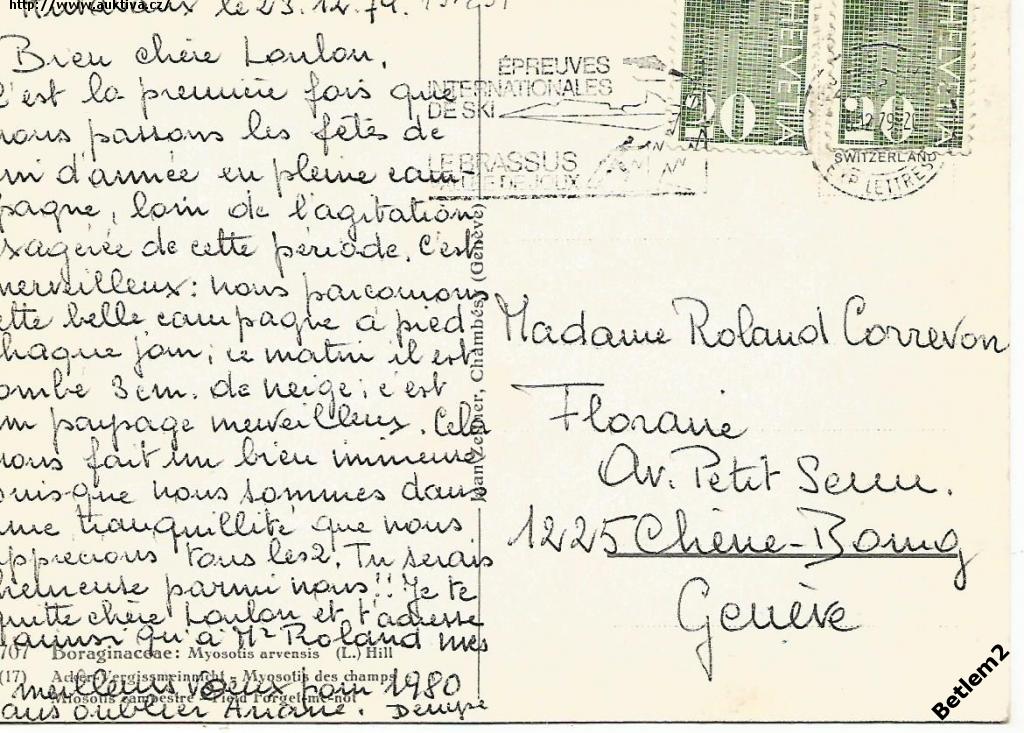 http://www.auktiva.cz/
le 23.12.79.
Bien chère Loulou,
c'est la première fois que
nous passons les fêtes de
fin d'année en pleine cam-
pagne, loin de l'agitation
exagérée de cette période. C'est
merveilleux: nous parcourons
cette belle campagne à pied
chaque jour; ce matin il est
tombé 3 cm. de neige; c'est
un paysage merveilleux. Cela
nous fait un bien immense
puisque nous sommes dans
une tranquillité que nous
apprécions tous les 2. Tu serais
heureuse parmi nous!! Je te
quitte chère Loulou et t'adresse
ainsi qu'à Mr Roland mes
meilleurs voeux pour 1980
sans oublier Ariane. Denyse
707 Boraginaceae: Myosotis arvensis (L.) Hill
(17) Acker-Vergissmeinnicht - Myosotis des champs
Miosotis campestre - Field Forget-me-not
Jean Zehner, Chambésy (Genève)
ÉPREUVES
INTERNATIONALES
DE SKI
LE BRASSUS
VALLÉE DE JOUX
HELVETIA
20
HELVETIA
20
12.79-20
SWITZERLAND
EXP LETTRES
Madame Roland Correvon
Floraire
Av. Petit Senn.
1225 Chêne-Bourg
Genève
Betlem2